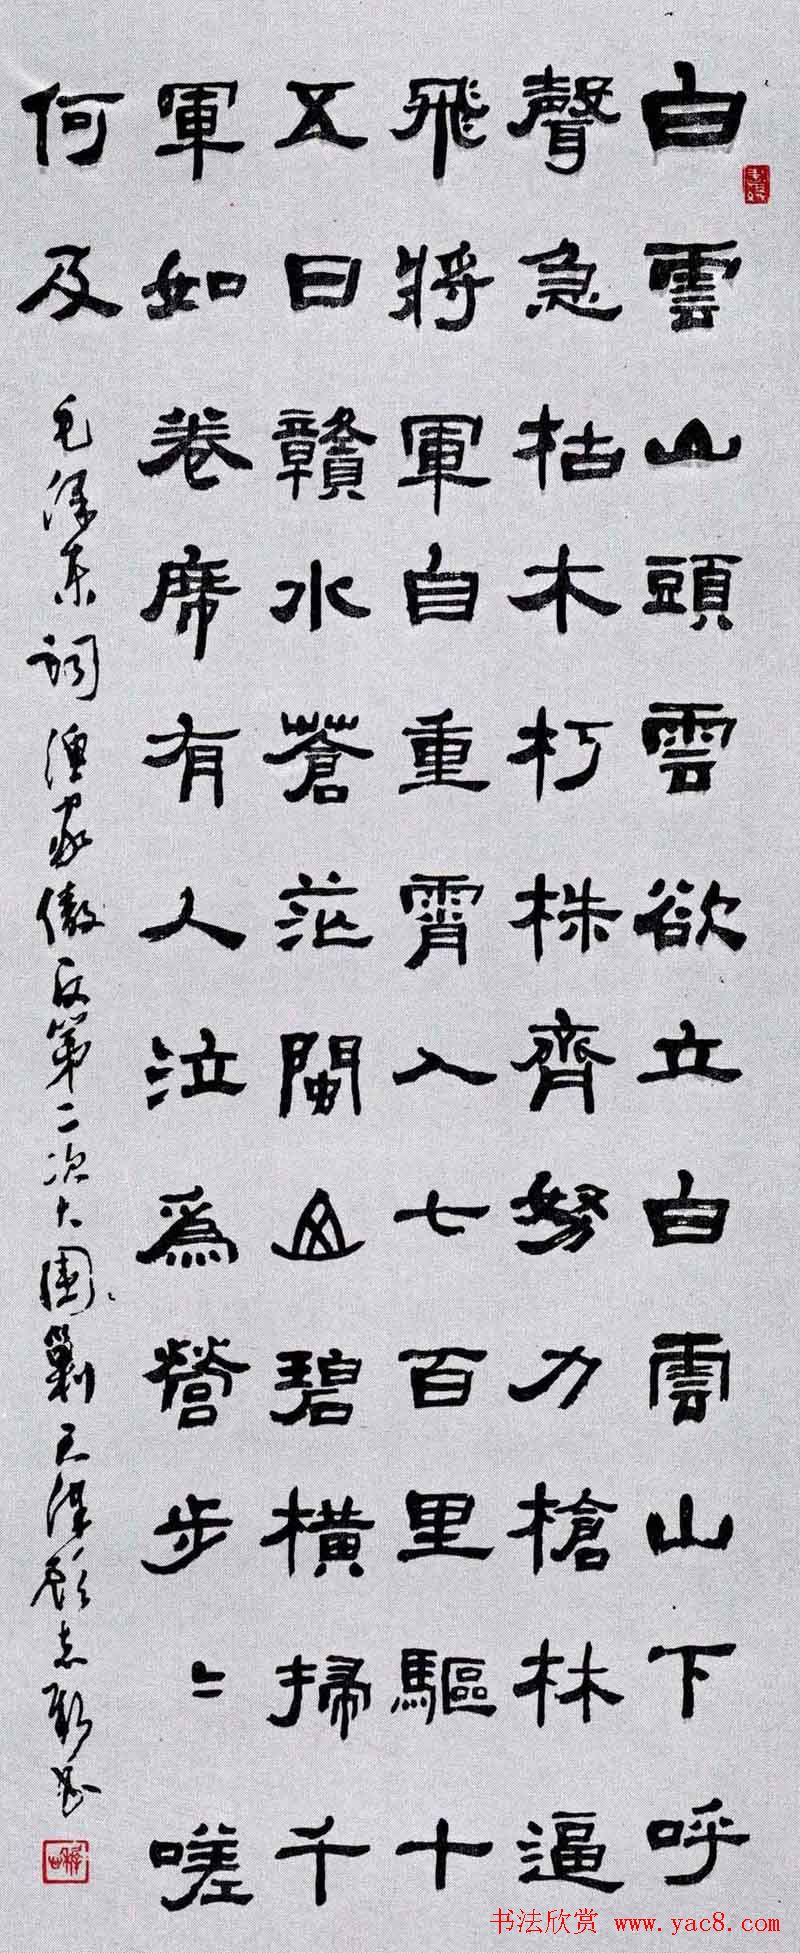 白雲山頭雲欲立白雲山下呼
聲急枯木朽株齊努力槍林逼
飛將軍自重霄入七百里驅十
五日贛水蒼茫閩山碧橫掃千
軍如卷席有人泣爲營步〻嗟
何及
毛澤東詞漁家傲反第二次大圍剿天津顧志新書
书法欣赏 www.yac8.com